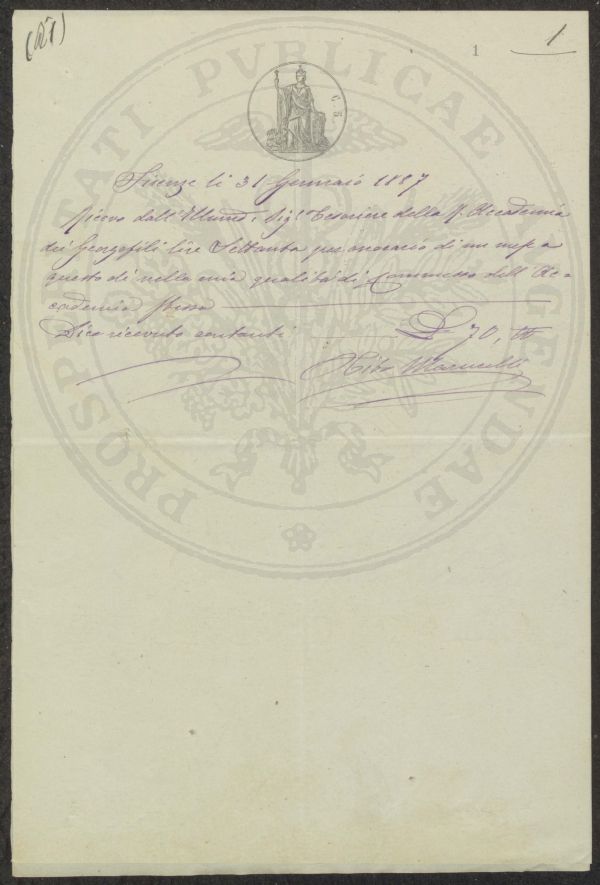 (R 1)
1
1
C. 5.
PROSPERITATI PVBLICAE AVGENDAE
Firenze li 31 Gennaio 1887
Ricevo dall' Illumo. Sigr. Tesoriere della R. Accademia
dei Georgofili lire Settanta per onorario di un mese a
questo dì nella mia qualità di Commesso dell' Ac-
cademia stessa
Dico ricevuto contanti L 70,
Marucelli